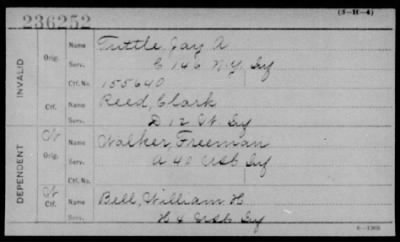 (3-H-4)
236252
INVALID
Orig.
Name Tuttle, Jay A.
Serv. C 146 N.Y. Inf
Ctf. No. 155640
Ctf.
Name Reed, Clark
Serv. D 12 Vt Inf
DEPENDENT
Orig.
Name Walker, Freeman
Serv. A 40 USC Inf
Ctf. No.
Ctf.
Name Bell, William H
Serv. H 4 USC Inf